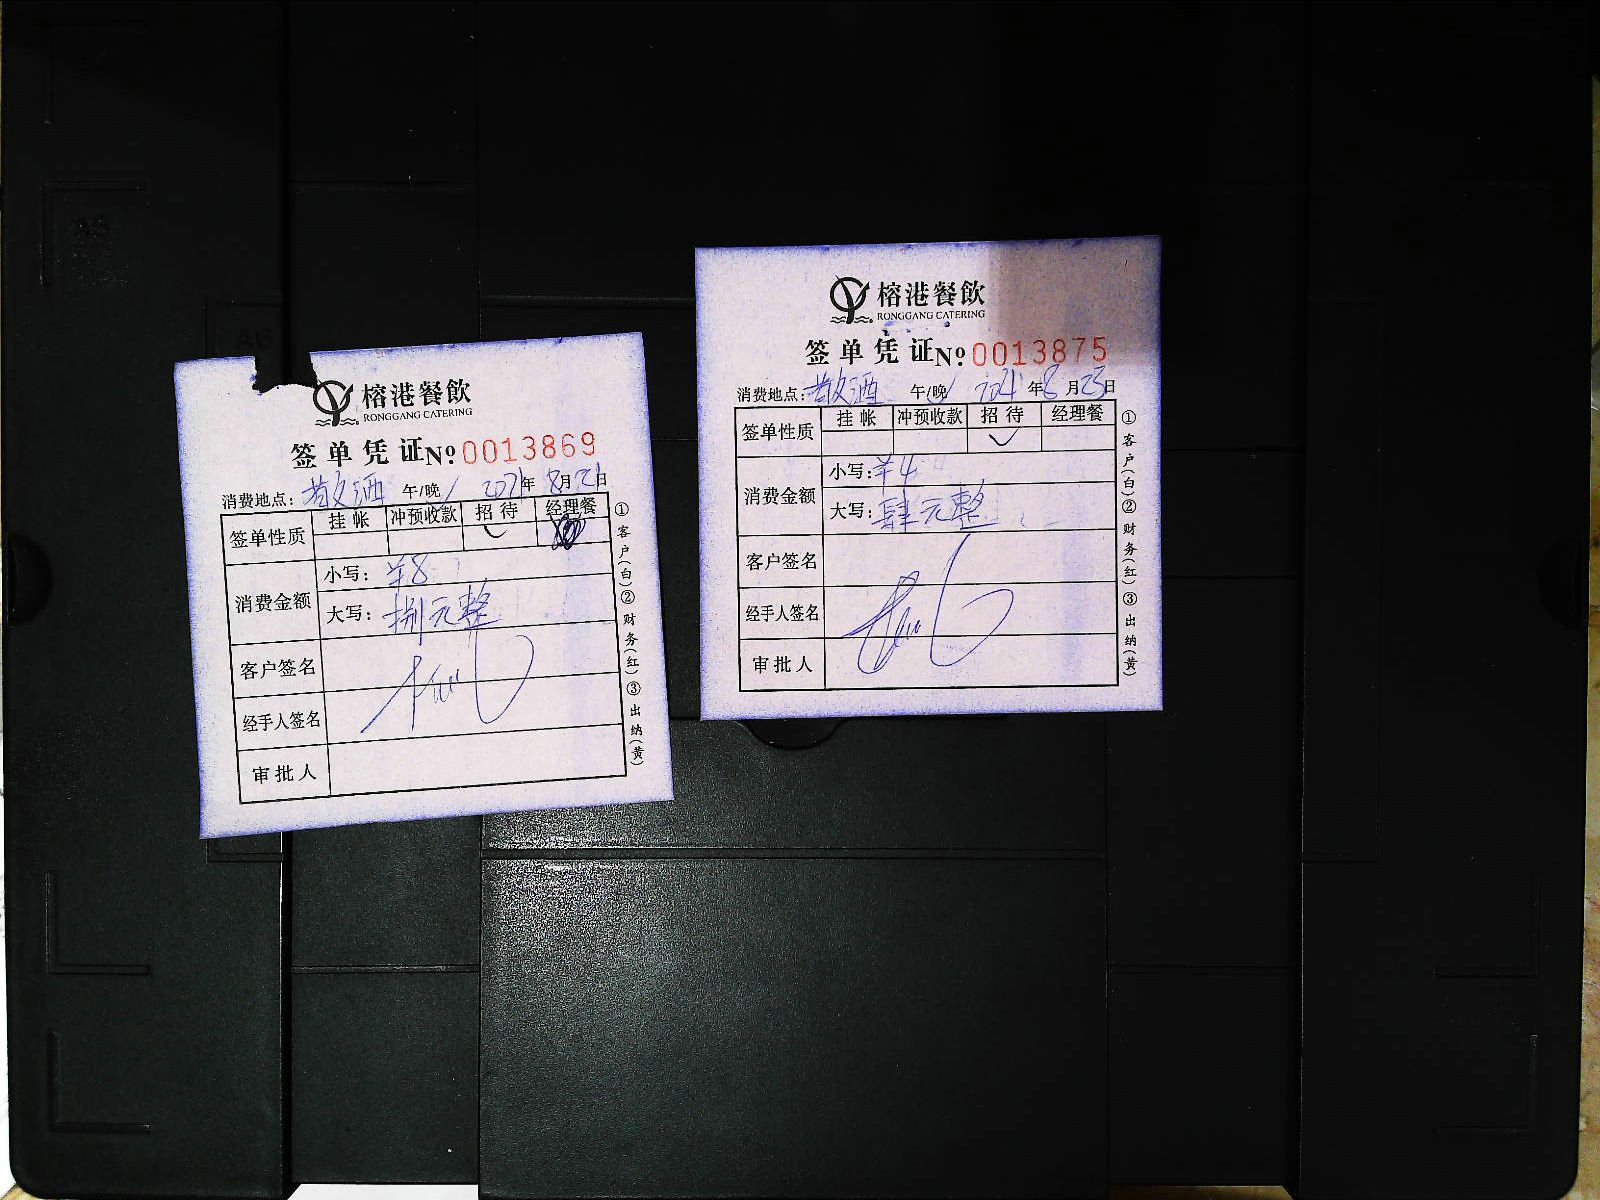 榕港餐飲
RONGGANG CATERING
签单凭证 No 0013869
消费地点：散酒 午/晚 2021年8月21日
签单性质 挂帐 冲预收款 招待 经理餐
消费金额 小写：¥8
大写：捌元整
客户签名
经手人签名
审批人
①客户(白)②财务(红)③出纳(黄)
榕港餐飲
RONGGANG CATERING
签单凭证 No 0013875
消费地点：散酒 午/晚 2021年8月25日
签单性质 挂帐 冲预收款 招待 经理餐
消费金额 小写：¥4
大写：肆元整
客户签名
经手人签名
审批人
①客户(白)②财务(红)③出纳(黄)
A5